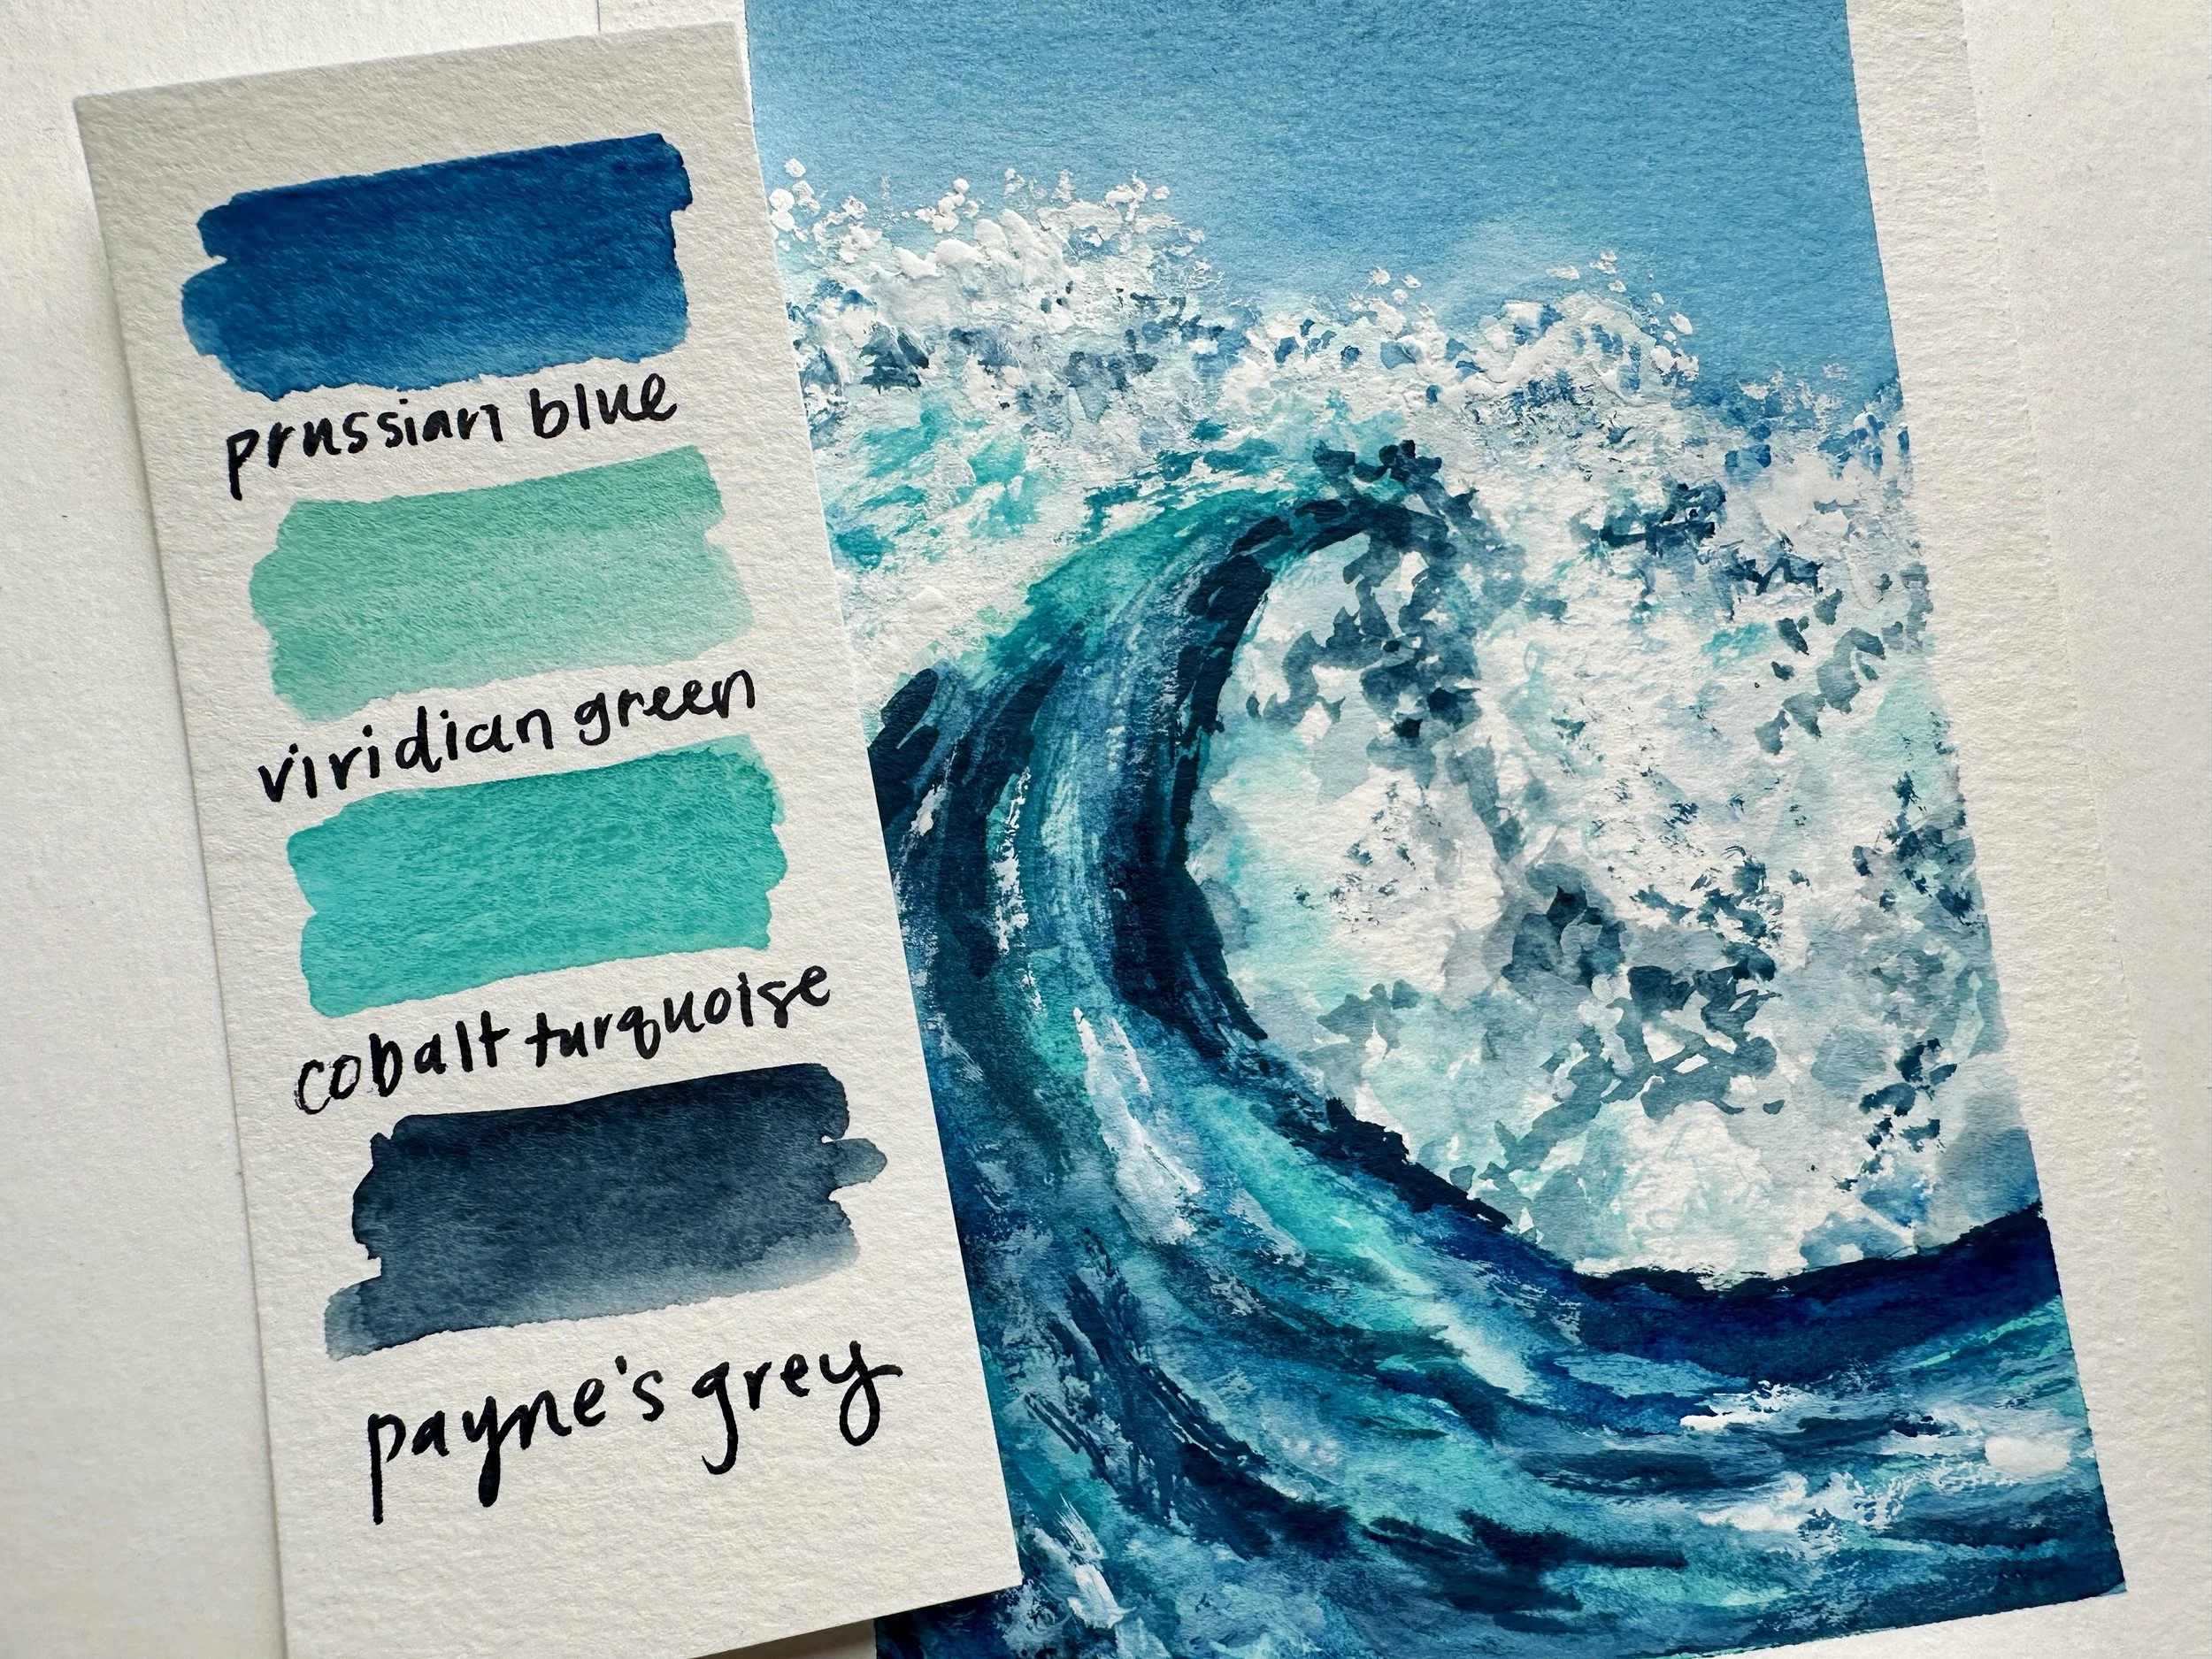 prussian blue
viridian green
cobalt turquoise
payne's grey